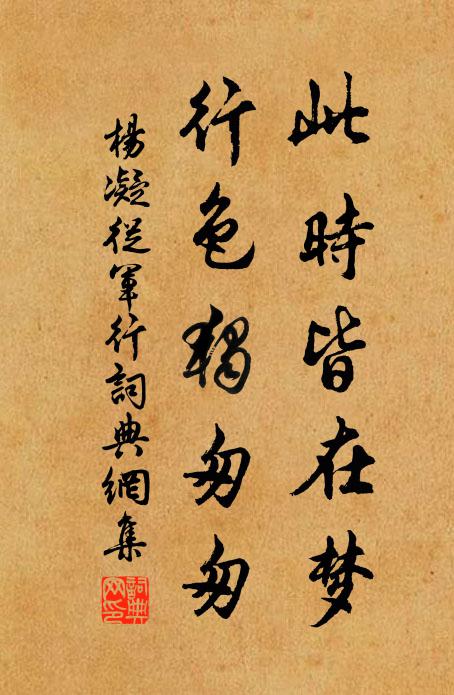 此時皆在梦
行色獨匆匆
楊凝從軍行詞典網集
詞典
网印